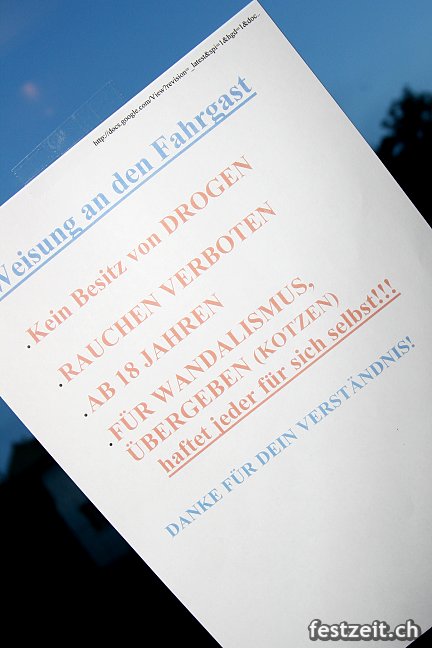 http://docs.google.com/View?revision=_latest&api=1&hgd=1&doc_
Weisung an den Fahrgast
• Kein Besitz von DROGEN
• RAUCHEN VERBOTEN
• AB 18 JAHREN
• FÜR WANDALISMUS,
ÜBERGEBEN (KOTZEN)
haftet jeder für sich selbst!!!
DANKE FÜR DEIN VERSTÄNDNIS!
festzeit.ch